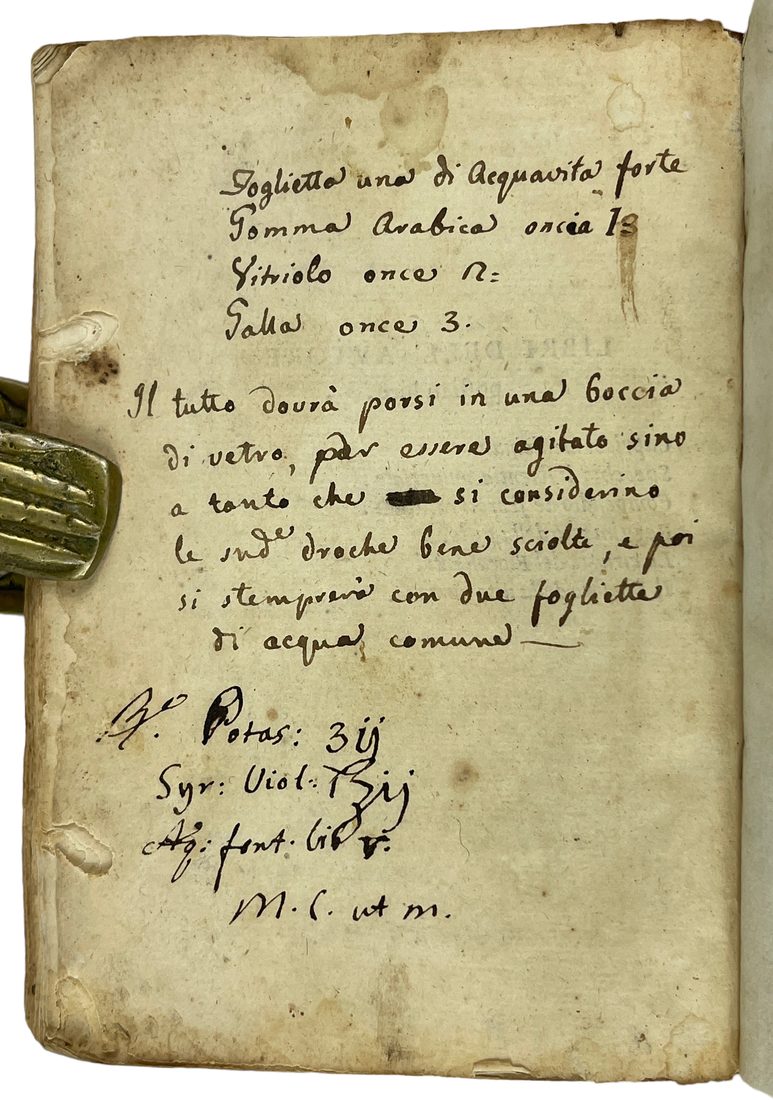 Foglietta una di Acquavita forte
Gomma Arabica oncia 1
Vitriolo once 2:
Galla once 3.
Il tutto dovrà porsi in una boccia
di vetro, per essere agitato sino
a tanto che si considerino
le sudᵉ droche bene sciolte, e poi
si stemprerà con due fogliette
di acqua comune
℞ᵉ. Potas: ʒij
Syr: Viol: ℥ij
Aq: font. lib
M. C. ut m.